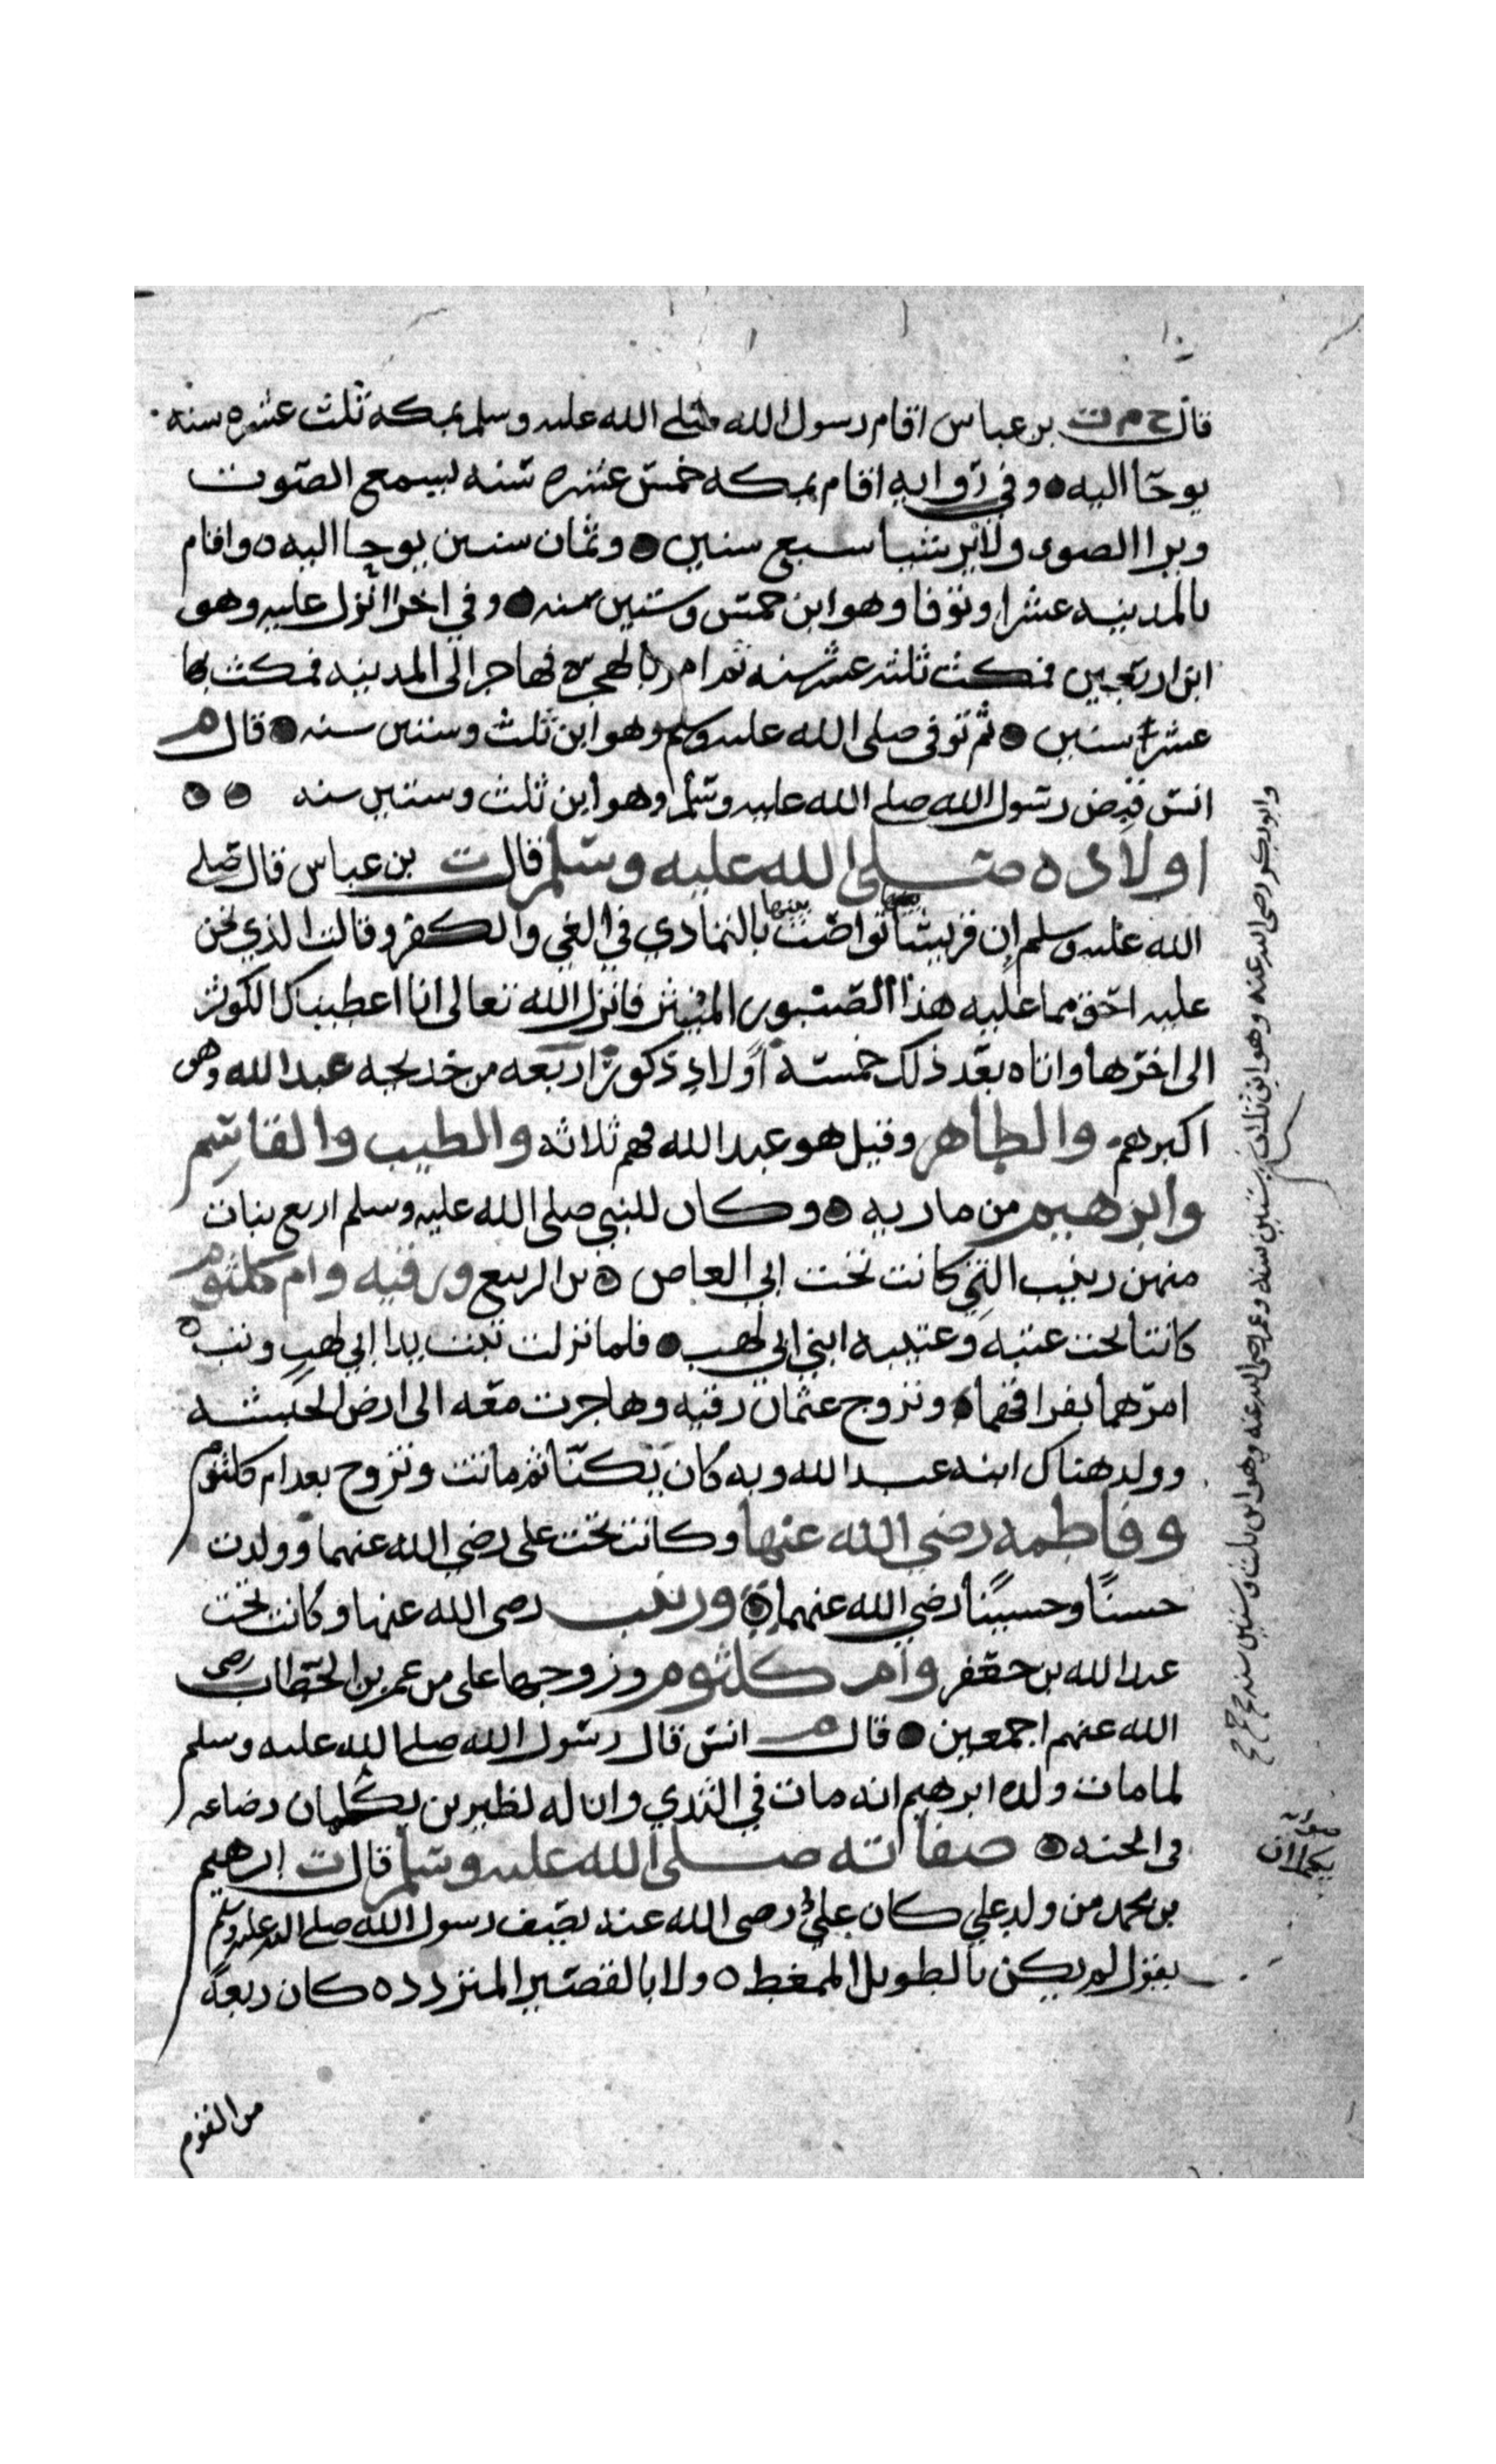 قال خ م ت بن عباس اقام رسول الله صلي الله عليه وسلم بمكه ثلث عشره سنه
يوحا اليه وفي روايه اقام بمكه خمس عشره سنه يسمع الصوت
ويرا الضوى ولا ير شيا سبع سنين وثمان سنين يوحا اليه واقام
بالمدينه عشرا وتوفا وهو ابن خمس وستين سنه وفي اخرا انزل عليه وهو
ابن اربعين فمكث ثلث عشر سنه ثم امر بالهجره فهاجر الى المدينه فمكث بها
عشر سنين ثم توفى صلى الله عليه وسلم وهو ابن ثلث وستين سنه قال م
انس قبض رسول الله صلي الله عليه وسلم وهو ابن ثلث وستين سنه
اولاده صلى الله عليه وسلم قال ت بن عباس قال صلى
الله عليه وسلم ان قريشا تواصت بالتمادي في الغي والكفر وقالت الذي نحن
عليه احق مما عليه هذا الصنبور المنبتر فانزل الله تعالى انا اعطيناك الكوثر
الى اخرها واتاه بعد ذلك خمسة اولاد ذكور اربعه من خديجه عبد الله وهو
اكبرهم والطاهر وقيل هو عبد الله فهم ثلاثه والطيب والقاسم
وابرهيم من ماريه وكان للنبي صلى الله عليه وسلم اربع بنات
منهن زينب التي كانت تحت ابي العاص بن الربيع ورقيه وام كلثوم
كانتا تحت عتبه وعتيبه ابني ابي لهب فلما نزلت تبت يدا ابي لهب وتب
امرهما بفراقهما وتزوج عثمان رقيه وهاجرت معه الى ارض الحبشه
وولد هناك ابنه عبد الله وبه كان يكنا ثم ماتت وتزوج بعد ام كلثوم
وفاطمه رضي الله عنها وكانت تحت على رضي الله عنهما وولدت
حسنا وحسينا رضي الله عنهما وزينب رضى الله عنها وكانت تحت
عبد الله بن جعفر وام كلثوم وزوجها على من عمر بن الخطاب رضى
الله عنهم اجمعين قال م انس قال رسول الله صلى الله عليه وسلم
لما مات ولده ابرهيم انه مات في الثدي وان له لظيرين يكملان رضاعه
في الجنه صفاته صلى الله عليه وسلم قال ت ابرهيم
بن محمد من ولد علي كان علي رضى الله عنه يصف رسول الله صلى الله عليه وسلم
يقول لم يكن بالطويل الممغط ولا بالقصير المتردد كان ربعة
من القوم
وابو بكر رضى الله عنه وهو ابن ثلث وستين سنه وعمر رضى الله عنه وهو ابن ثلث وستين سنه
صوابه
يكملان